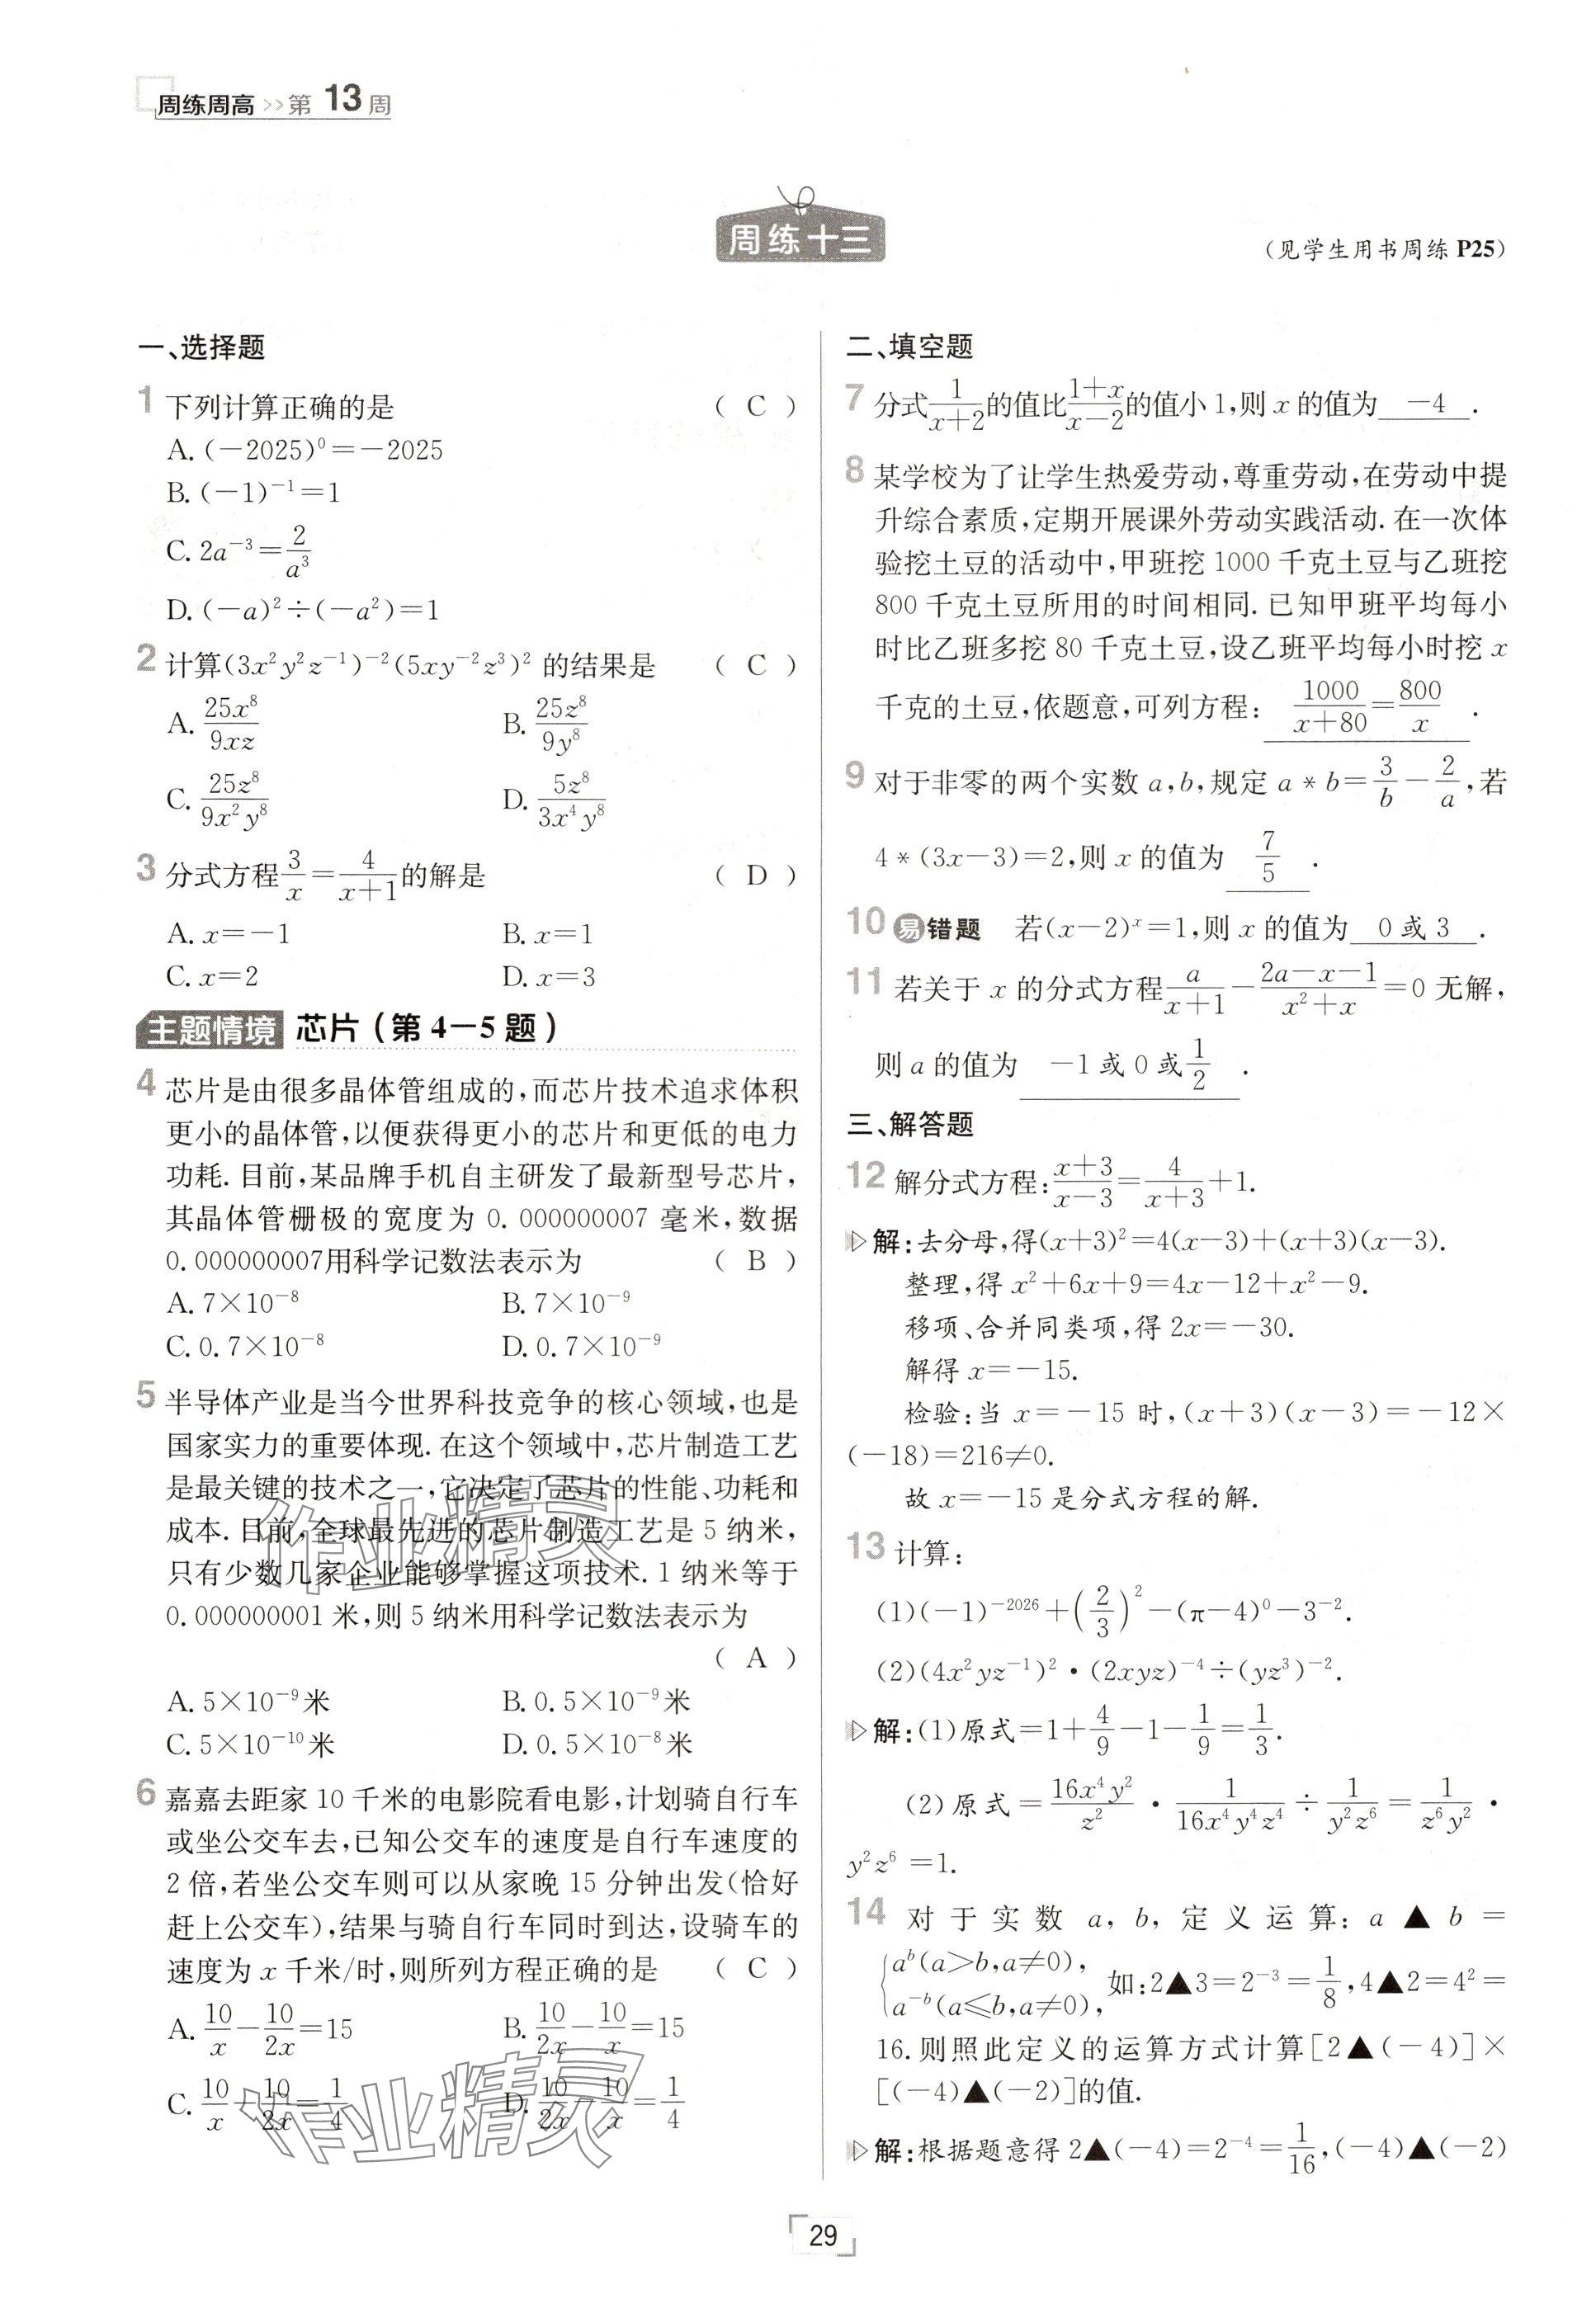 周练周高>>第 13 周
周练十三
(见学生用书周练 P25)
一、选择题
1 下列计算正确的是 ( C )
A. (−2025)⁰=−2025
B. (−1)⁻¹=1
C. 2a⁻³=2/a³
D. (−a)²÷(−a²)=1
2 计算(3x²y²z⁻¹)⁻²(5xy⁻²z³)² 的结果是 ( C )
A. 25x⁸/9xz B. 25z⁸/9y⁸
C. 25z⁸/9x²y⁸ D. 5z⁸/3x⁴y⁸
3 分式方程3/x=4/(x+1)的解是 ( D )
A. x=−1 B. x=1
C. x=2 D. x=3
主题情境 芯片(第 4—5 题)
4 芯片是由很多晶体管组成的,而芯片技术追求体积
更小的晶体管,以便获得更小的芯片和更低的电力
功耗. 目前,某品牌手机自主研发了最新型号芯片,
其晶体管栅极的宽度为 0. 000000007 毫米,数据
0. 000000007用科学记数法表示为 ( B )
A. 7×10⁻⁸ B. 7×10⁻⁹
C. 0. 7×10⁻⁸ D. 0. 7×10⁻⁹
5 半导体产业是当今世界科技竞争的核心领域,也是
国家实力的重要体现. 在这个领域中,芯片制造工艺
是最关键的技术之一,它决定了芯片的性能、功耗和
成本. 目前,全球最先进的芯片制造工艺是 5 纳米,
只有少数几家企业能够掌握这项技术. 1 纳米等于
0. 000000001 米,则 5 纳米用科学记数法表示为
( A )
A. 5×10⁻⁹米 B. 0. 5×10⁻⁹米
C. 5×10⁻¹⁰米 D. 0. 5×10⁻⁸米
6 嘉嘉去距家 10 千米的电影院看电影,计划骑自行车
或坐公交车去,已知公交车的速度是自行车速度的
2 倍,若坐公交车则可以从家晚 15 分钟出发(恰好
赶上公交车),结果与骑自行车同时到达,设骑车的
速度为 x 千米/时,则所列方程正确的是 ( C )
A. 10/x−10/2x=15 B. 10/2x−10/x=15
C. 10/x−10/2x=1/4 D. 10/2x−10/x=1/4
二、填空题
7 分式1/(x+2)的值比(1+x)/(x−2)的值小 1,则 x 的值为 −4 .
8 某学校为了让学生热爱劳动,尊重劳动,在劳动中提
升综合素质,定期开展课外劳动实践活动. 在一次体
验挖土豆的活动中,甲班挖 1000 千克土豆与乙班挖
800 千克土豆所用的时间相同. 已知甲班平均每小
时比乙班多挖 80 千克土豆,设乙班平均每小时挖 x
千克的土豆,依题意,可列方程: 1000/(x+80)=800/x .
9 对于非零的两个实数 a,b,规定 a*b=3/b−2/a,若
4*(3x−3)=2,则 x 的值为 7/5 .
10 易错题 若(x−2)ˣ=1,则 x 的值为 0 或 3 .
11 若关于 x 的分式方程a/(x+1)−(2a−x−1)/(x²+x)=0 无解,
则 a 的值为 −1 或 0 或1/2 .
三、解答题
12 解分式方程:(x+3)/(x−3)=4/(x+3)+1.
▷解:去分母,得(x+3)²=4(x−3)+(x+3)(x−3).
整理,得 x²+6x+9=4x−12+x²−9.
移项、合并同类项,得 2x=−30.
解得 x=−15.
检验:当 x=−15 时,(x+3)(x−3)=−12×
(−18)=216≠0.
故 x=−15 是分式方程的解.
13 计算:
(1)(−1)⁻²⁰²⁶+(2/3)²−(π−4)⁰−3⁻².
(2)(4x²yz⁻¹)²·(2xyz)⁻⁴÷(yz³)⁻².
▷解:(1)原式=1+4/9−1−1/9=1/3.
(2)原式=16x⁴y²/z²·1/16x⁴y⁴z⁴÷1/y²z⁶=1/z⁶y²·
y²z⁶=1.
14 对于实数 a, b, 定义运算: a▲b=
{aᵇ(a>b,a≠0), a⁻ᵇ(a⩽b,a≠0), 如:2▲3=2⁻³=1/8,4▲2=4²=
16. 则照此定义的运算方式计算[2▲(−4)]×
[(−4)▲(−2)]的值.
▷解:根据题意得 2▲(−4)=2⁻⁴=1/16,(−4)▲(−2)
29
作业精灵
作业精灵